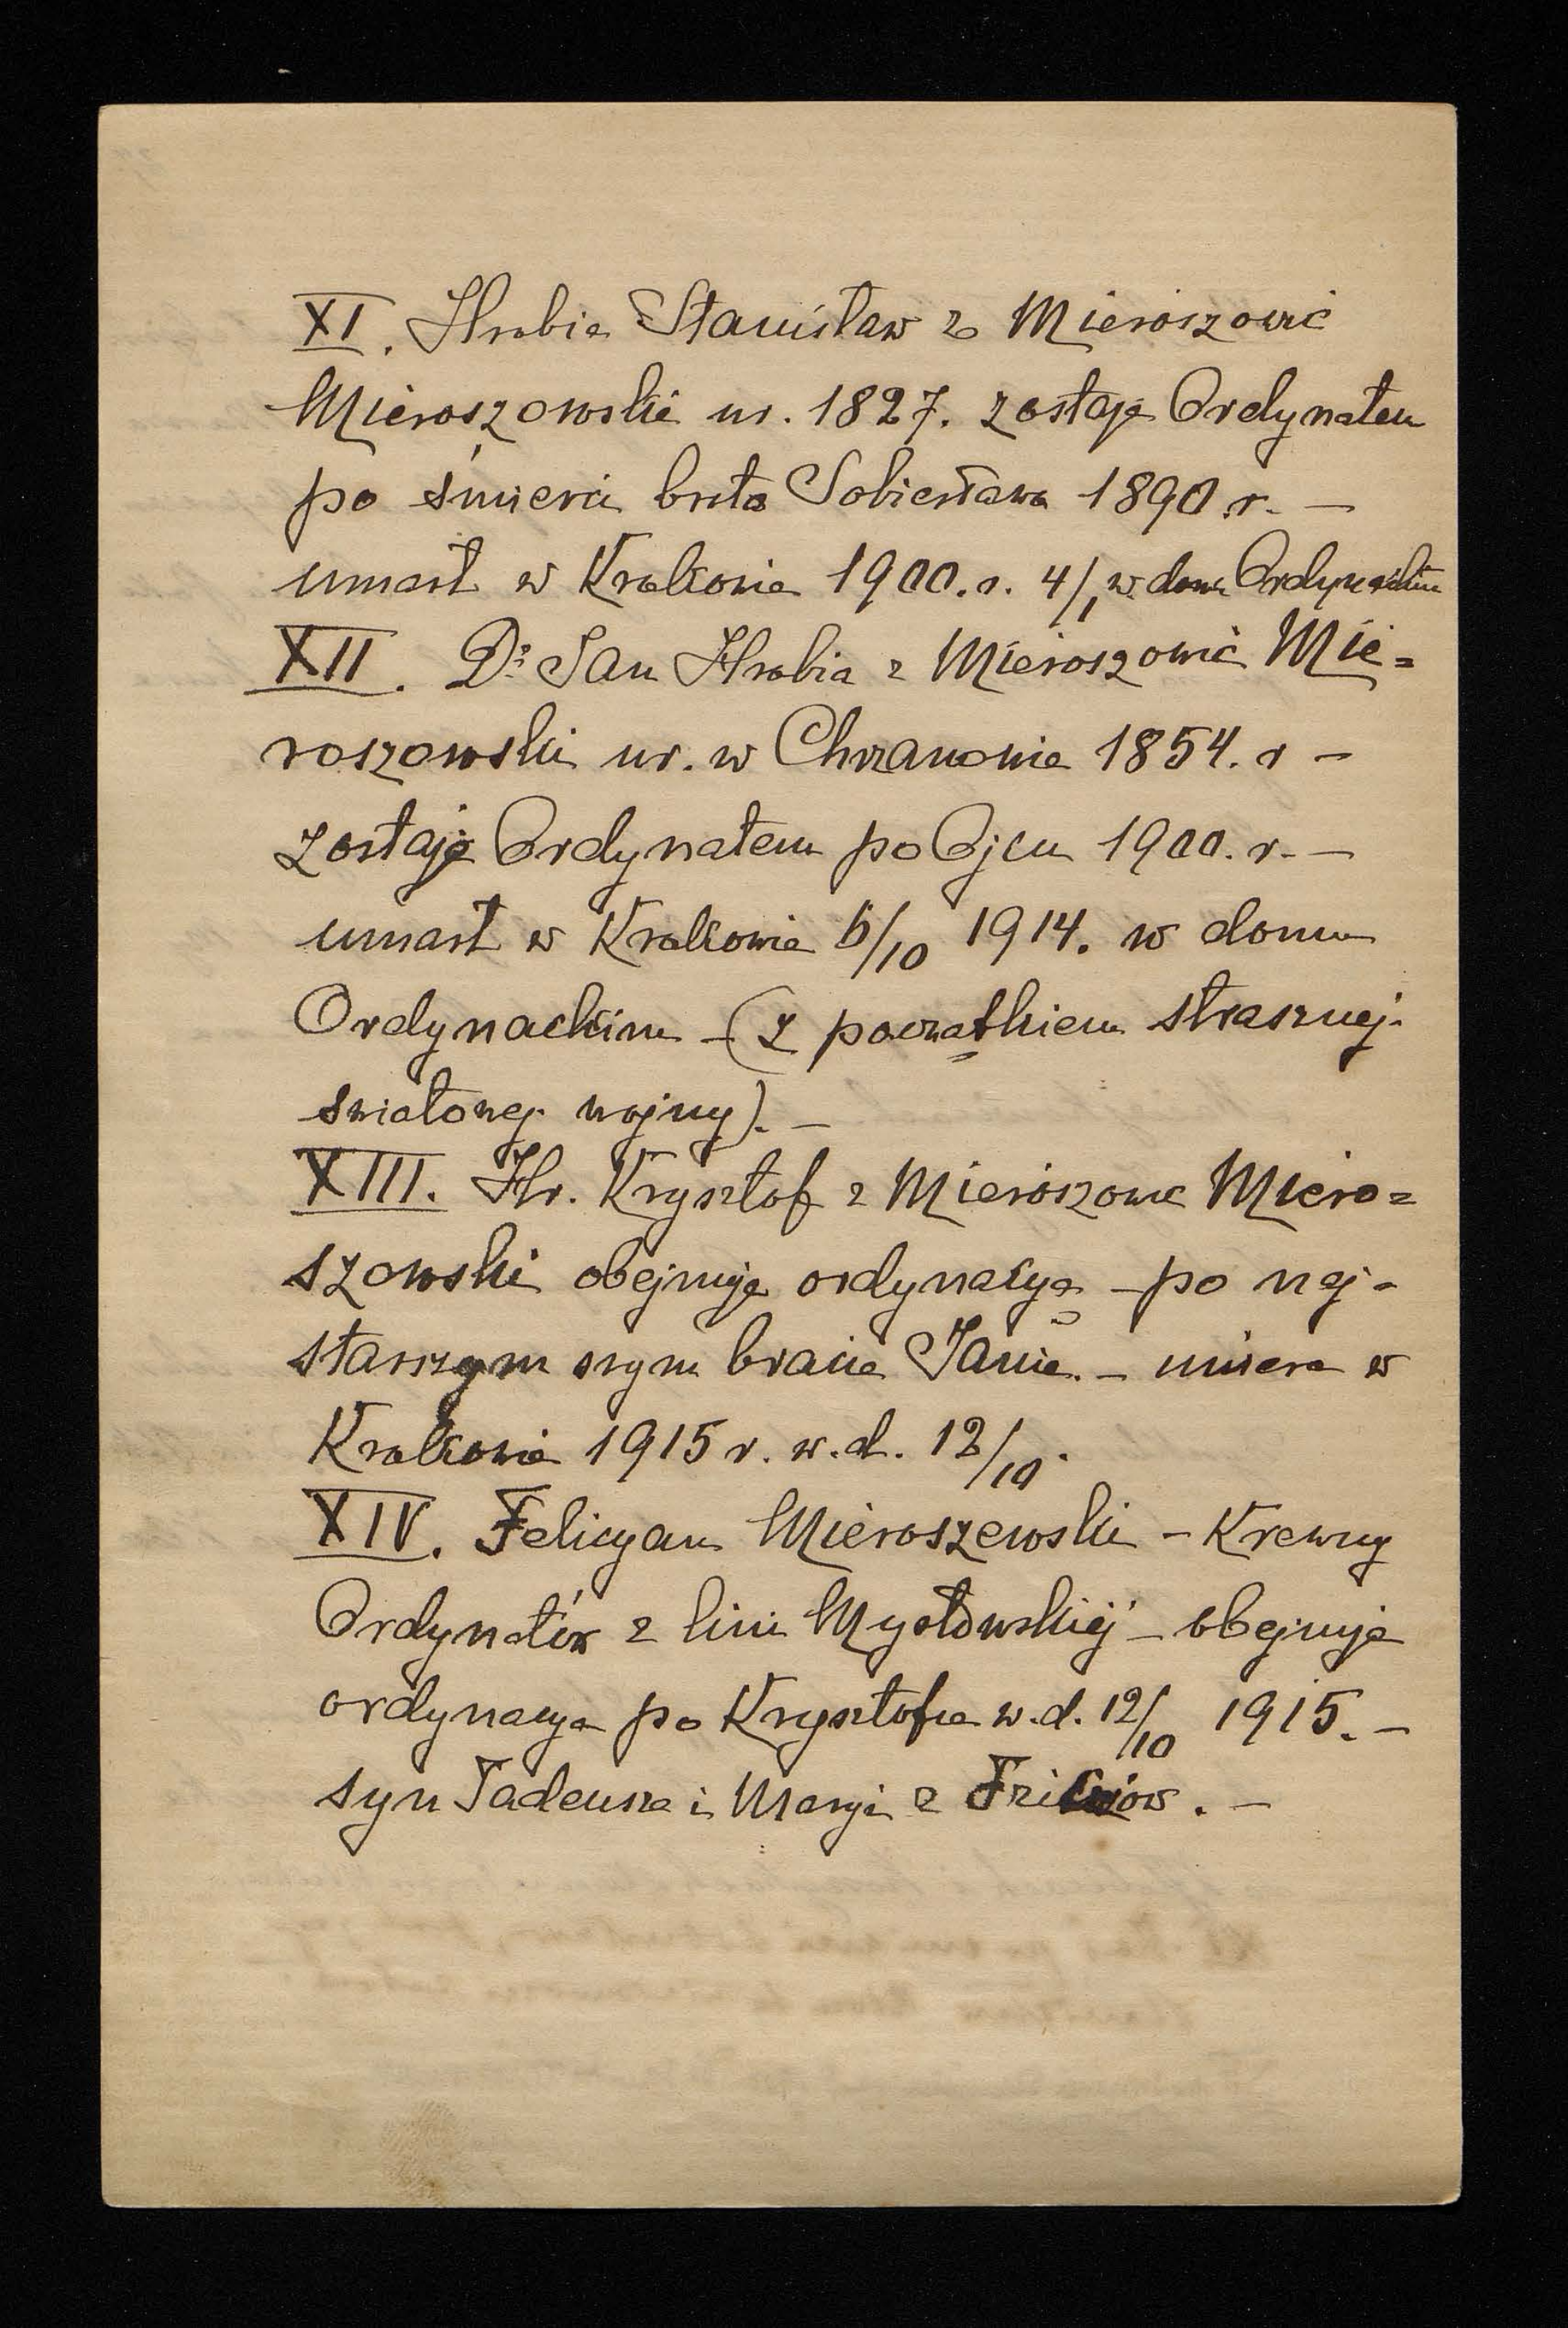 XI. Hrabia Stanisław z Mieroszowic
Mieroszowski ur. 1827. zostaje Ordynatem
po śmierci brata Sobiesława 1890 r. —
umarł w Krakowie 1900. r. 4/1 w domu Ordynackim
XII. Dr Jan Hrabia z Mieroszowic Mie=
roszowski ur. w Chrzanowie 1854. r —
zostaje Ordynatem po Ojcu 1900. r. —
umarł w Krakowie 6/10 1914. w domu
Ordynackim — (z początkiem strasznej
światowej wojny). —
XIII. Hr. Krysztof z Mieroszowic Miero=
szowski obejmuje ordynacyą — po naj-
starszym swym bracie Janie. — umiera w
Krakowie 1915 r. w. d. 12/10.
XIV. Felicyan Mieroszewski — Krewny
Ordynatów z linii Mysłowskiej — obejmuje
ordynacya po Krysztofie w. d. 12/10 1915. —
syn Tadeusza i Maryi z .—